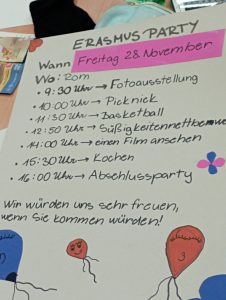 ERASMUS-PARTY
Wann Freitag 28. November
Wo: Rom
• 9:30 Uhr → Fotoausstellung
• 10:00 Uhr → Picknick
• 11:30 Uhr → Basketball
• 12:50 Uhr → Süßigkeitennettbewe
• 14:00 Uhr → einen Film ansehen
• 15:30 Uhr → Kochen
• 16:00 Uhr → Abschlussparty
Wir würden uns sehr freuen,
wenn Sie kommen würden!